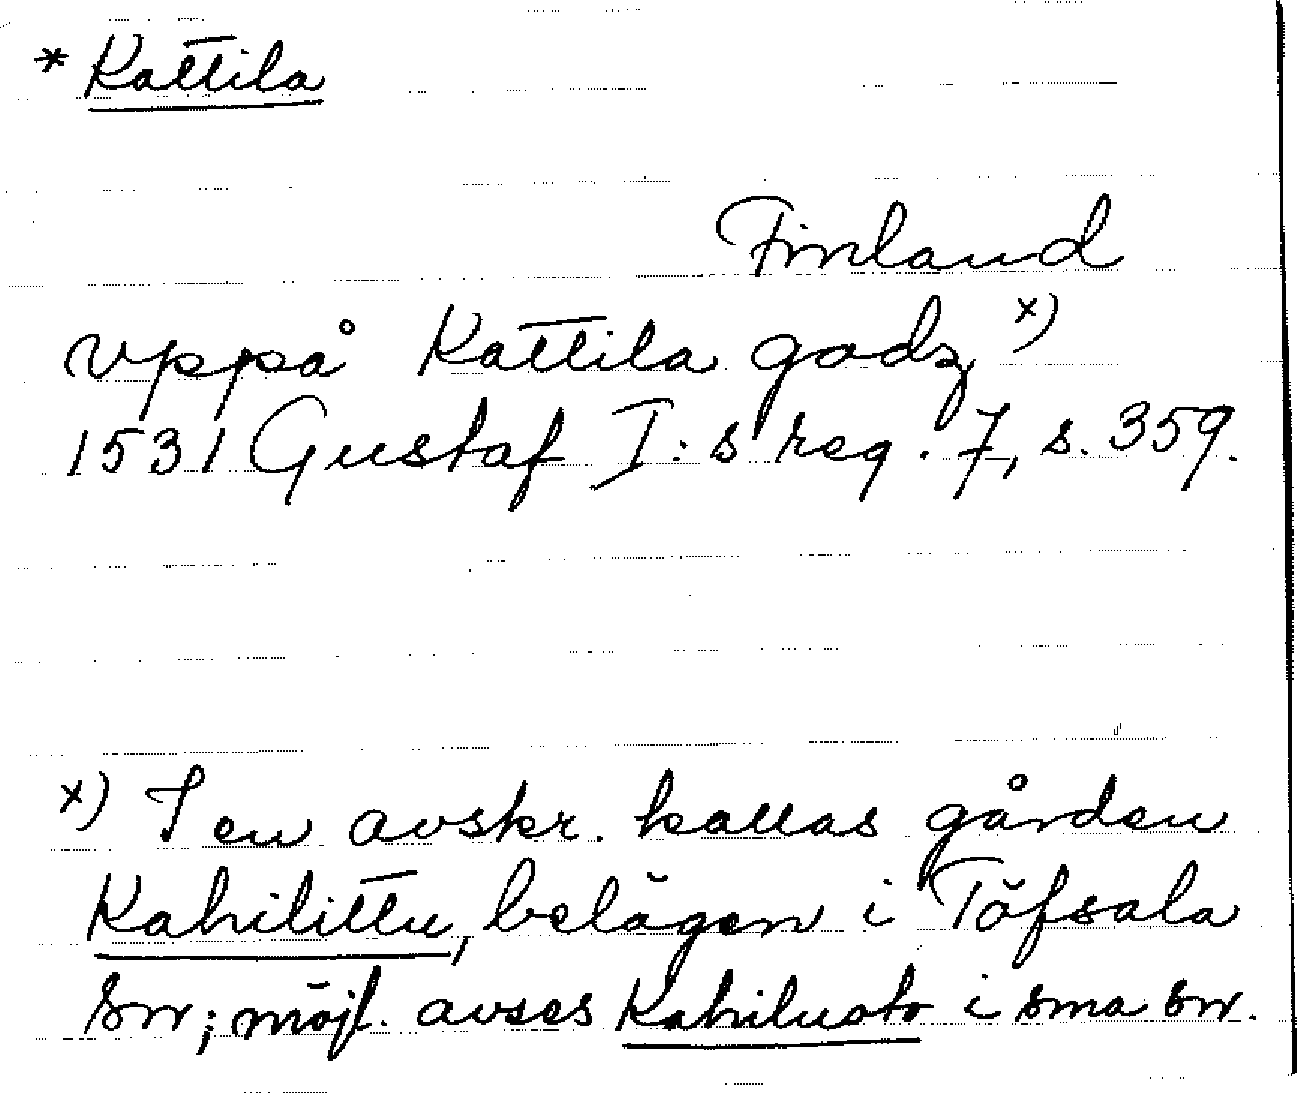 * Kattila
Finland
vppå Kattila godz x)
1531 Gustaf I:s reg. 7, s. 359.
x) I en avskr. kallas gården
Kahilittu, belägen i Töfsala
sn; möjl. avses Kahiluoto i sma sn.